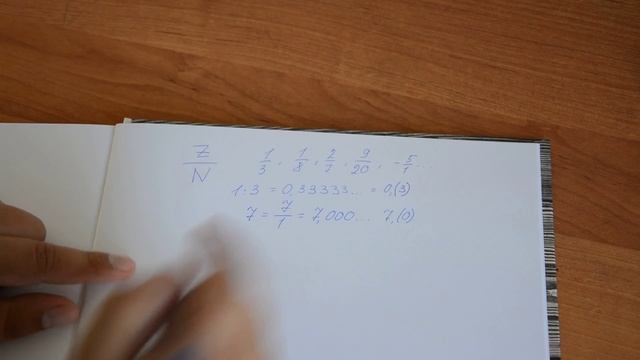 Z/N 1/3, 1/8, 2/7, 9/20, -5/1...
1:3 = 0,33333... = 0,(3)
7 = 7/1 = 7,000... 7,(0)